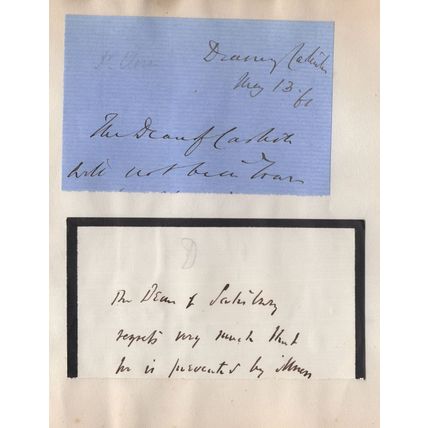 Dr Close
Deanery Carlisle
May 13. 61
The Dean of Carlisle
will not be in Town
D
The Dean of Salisbury
regrets very much that
he is prevented by illness